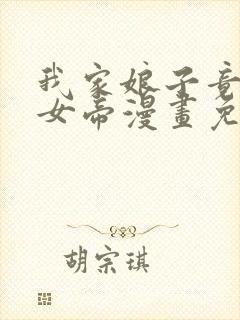 我家娘子竟
女帝漫畫免
胡宗琪